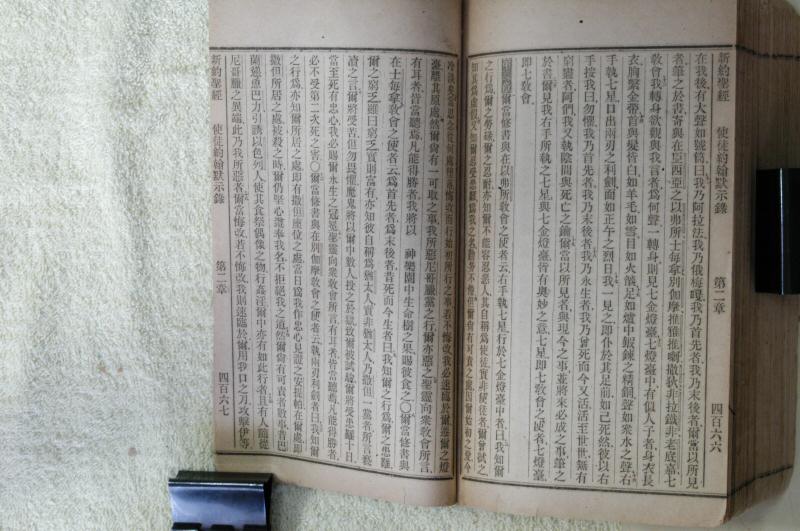 新約聖經 使徒約翰默示錄 第二章 四百六六
在我後有大聲如號筒曰我乃阿拉法我乃俄梅嘎我乃首先者我乃末後者爾當以所見
者筆之於書寄與在亞西亞之以弗所士每拿別伽摩推雅推喇撒狄非拉鐵非老底嘉七
教會我轉身欲觀與我言者爲何聲一轉身則見七金燈臺七燈臺中有似人子者身衣長
衣胸繫金帶首與髮皆白如羊毛如雪目如火燄足如爐中煅鍊之精銅聲如衆水之聲右
手執七星口出兩刃之利劍面如正午之烈日我一見之卽仆於其足前如已死然彼以右
手按我曰勿懼我乃首先者我乃末後者我乃永生者我乃曾死而今又活活至世世無有
窮盡者阿們我又執陰間與死亡之鑰爾當以所見者與現今之事並將來必成之事筆之
於書爾見我右手所執之七星與七金燈臺皆有奧妙之意七星卽七教會之使者七燈臺
卽七教會
爾當修書與在以弗所教會之使者云右手執七星行於七金燈臺中者曰我知爾
之行爲爾之勞碌爾之忍耐亦知爾不能容惡人其自稱爲使徒實非使徒者爾曾試之
新約聖經 使徒約翰默示錄 第二章 四百六七
臺離其原處然爾尚有一可取之事我所惡尼哥臘黨之行爾亦惡之聖靈向衆教會所言
有耳者皆當聽焉凡能得勝者我將以 神樂園中生命樹之果賜彼食之〇爾當修書與
在士每拿教會之使者云爲首先者爲末後者曾死而今生者曰我知爾之行爲爾之患難
爾之窮乏雖曰窮乏實則富有亦知彼自稱爲猶太人實非猶太人乃撒但一黨者所言褻
瀆之言爾將受苦但勿畏懼魔鬼將以爾中數人投之於獄致爾被試煉爾將受患難十日
當至死有忠心我必賜爾永生之冠冕聖靈向衆教會所言有耳者皆當聽焉凡能得勝者
必不受第二次死之害〇爾當修書與在別伽摩教會之使者云執兩刃利劍者曰我知爾
之行爲亦知爾所居之處卽有撒但座位之處當日爲我作忠心見證之安提帕在爾處卽
撒但所居之處被殺之時爾仍堅心護奉我名不拒絕我之道然爾尚有可責者數事昔巴
蘭慫恿巴勒引誘以色列人使其食祭偶像之物行姦淫爾中亦有如此行者且有人隨從
尼哥臘之異端此乃我所惡者爾當悔改若不悔改我則速臨於爾用我口之刀攻擊伊等